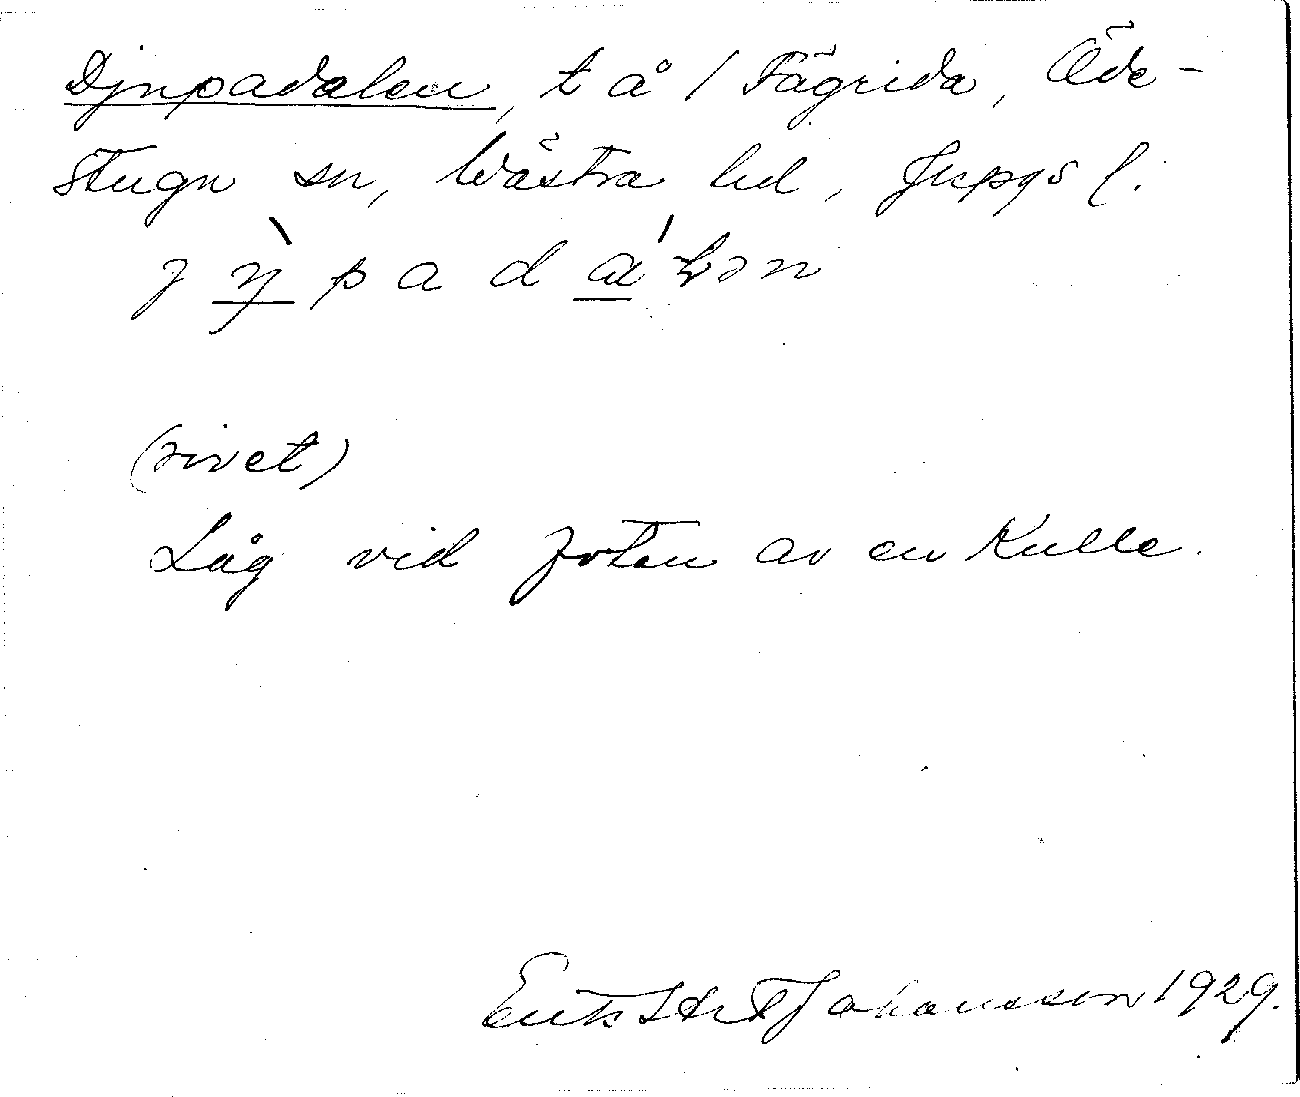 Djupadalen, t å / Fägrida, Öde-
stugu sn, Västra hd, Jkpgs l.
j ỳ̠ p a d á̠ ɬ ə n
(rivet)
Låg vid foten av en kulle.
Johansson 1929.